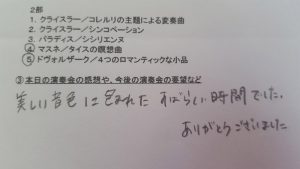 2部
1. クライスラー/コレルリの主題による変奏曲
2. クライスラー/シンコペーション
3. パラディス/シシリエンヌ
④ マスネ/タイスの瞑想曲
⑤ ドヴォルザーク/4つのロマンティックな小品
③ 本日の演奏会の感想や、今後の演奏会の要望など
美しい音色に包まれた すばらしい時間でした。
ありがとうございました